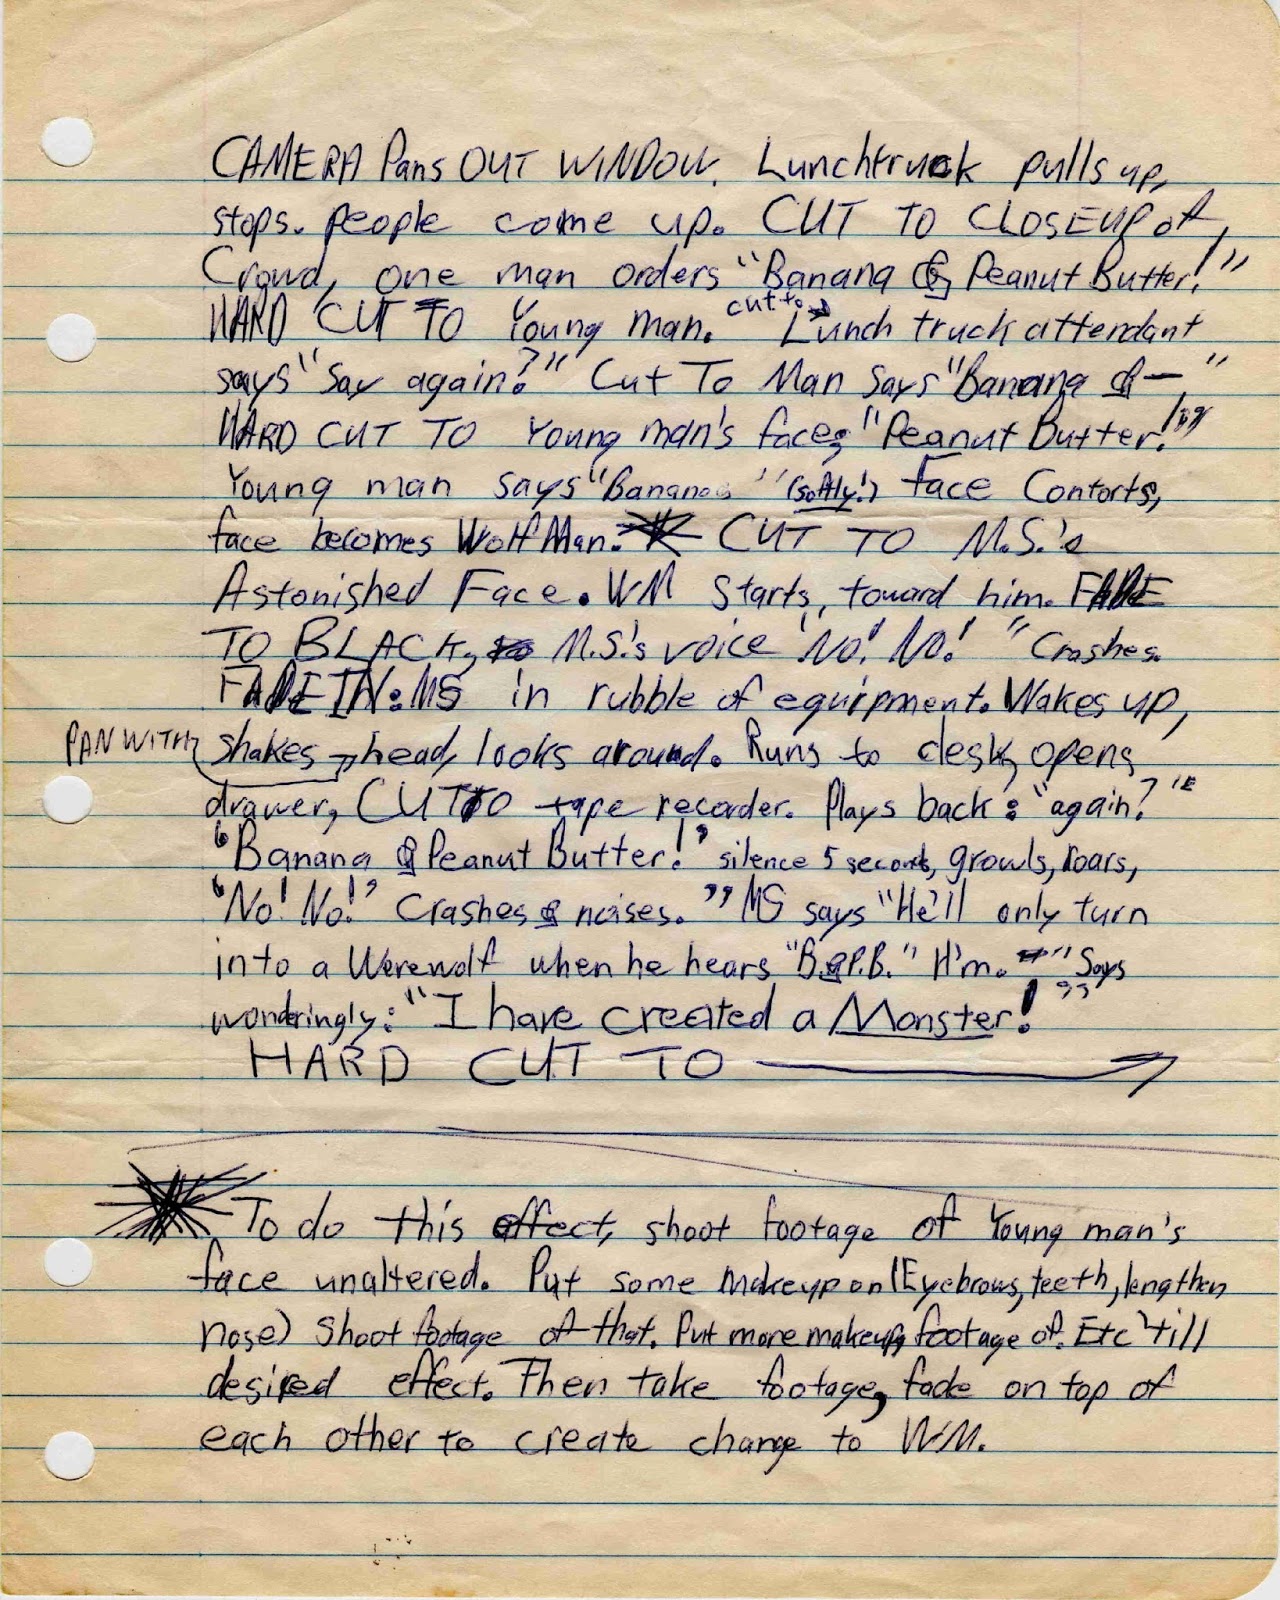 CAMERA Pans OUT WINDOW. Lunchtruck pulls up,
stops. people come up. CUT TO CLOSEUP of
Crowd, one man orders "Banana & Peanut Butter!"
HARD CUT TO Young man. cut to Lunch truck attendant
says "Say again?" Cut To Man says "Banana &— "
HARD CUT TO Young man's face; "Peanut Butter!"
Young man says "Banana " (softly!) Face Contorts,
face becomes Wolf Man. * CUT TO M.S.'s
Astonished Face. WM starts, toward him. FADE
TO BLACK, M.S.'s voice "No! No!" Crashes.
FADE IN: MS in rubble of equipment. Wakes up,
PAN WITH
shakes head, looks around. Runs to desk, opens
drawer, CUT TO tape recorder. Plays back: "again?"
"Banana & Peanut Butter!" silence 5 seconds, growls, roars,
"No! No!" Crashes & noises." MS says "He'll only turn
into a Werewolf when he hears "B.&P.B." H'm. " Says
wonderingly: "I have created a Monster!"
HARD CUT TO
* To do this effect, shoot footage of Young man's
face unaltered. Put some makeup on (Eyebrows, teeth, lengthen
nose) Shoot footage of that. Put more makeup, footage of. Etc 'till
desired effect. Then take footage, fade on top of
each other to create change to WM.